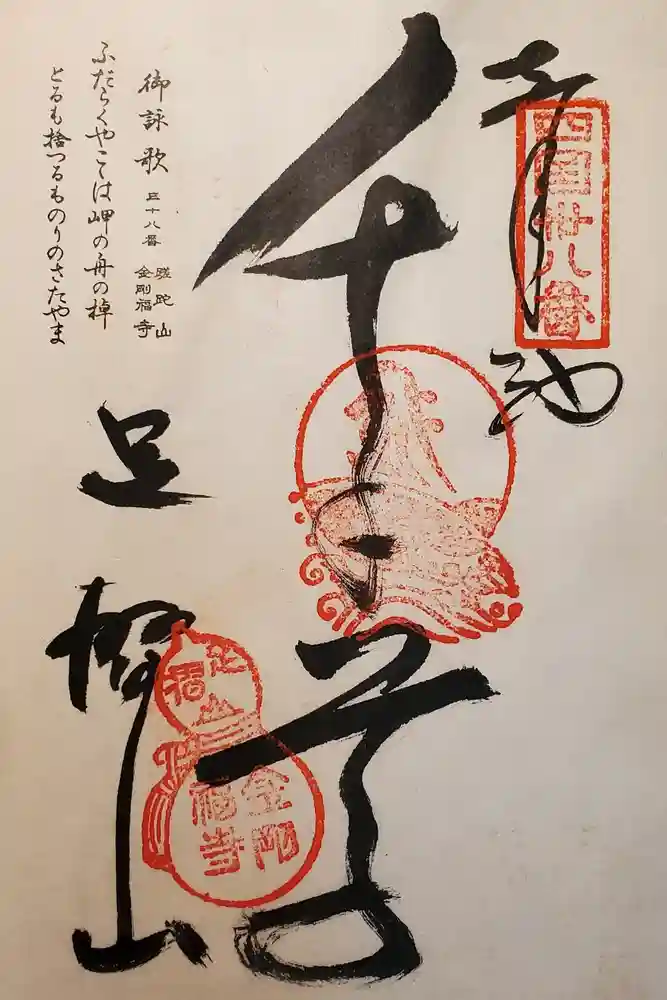 四国卅八番
千手
足摺山
金剛
福寺
御詠歌 三十八番 蹉跎山 金剛福寺
ふだらくやこゝは岬の舟の棹
とるも捨つるものりのさたやま